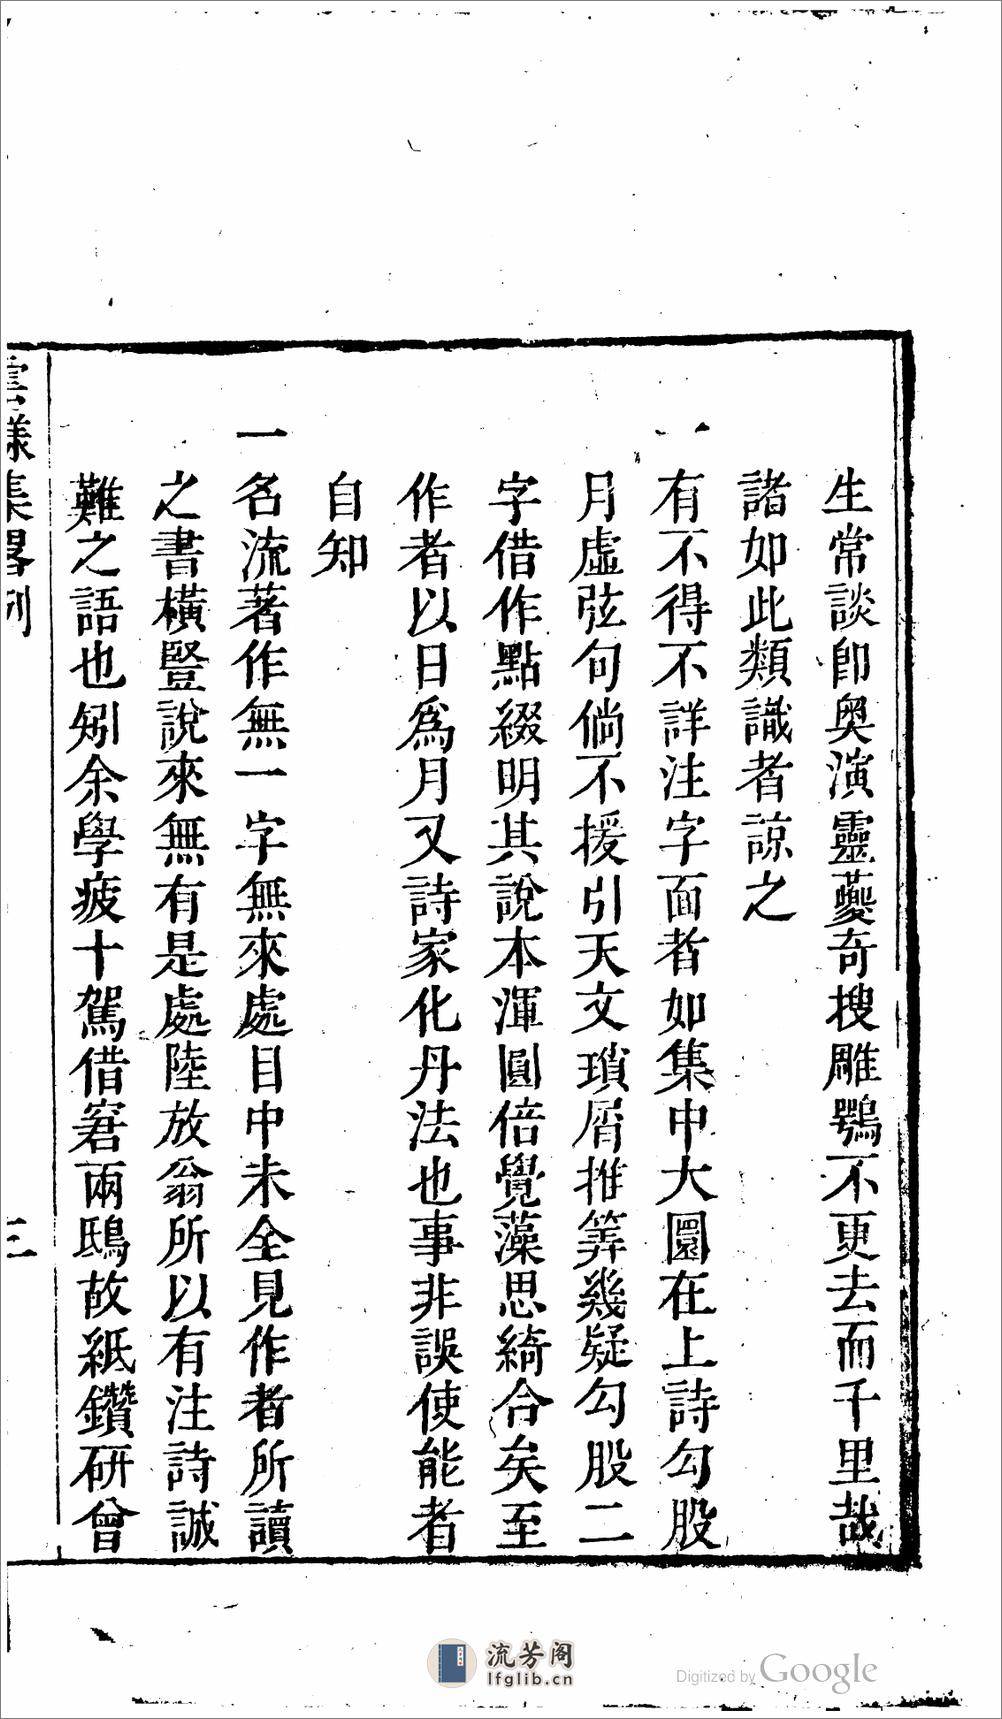 生常談即奥演靈夔奇搜雕鶚不更去而千里哉
諸如此類識者諒之
一有不得不詳注字面者如集中大圜在上詩勾股
月虛弦句倘不援引天文瑣屑推筭幾疑勾股二
字借作點綴明其說本渾圓倍覺藻思綺合矣至
作者以日爲月又詩家化丹法也事非誤使能者
自知
一名流著作無一字無來處目中未全見作者所讀
之書橫豎說來無有是處陸放翁所以有注詩誠
難之語也矧余學疲十駕借窘兩鴟故紙鑽研曾
雲樣集畧例
三
流芳阁
lfglib.cn
Digitized by Google